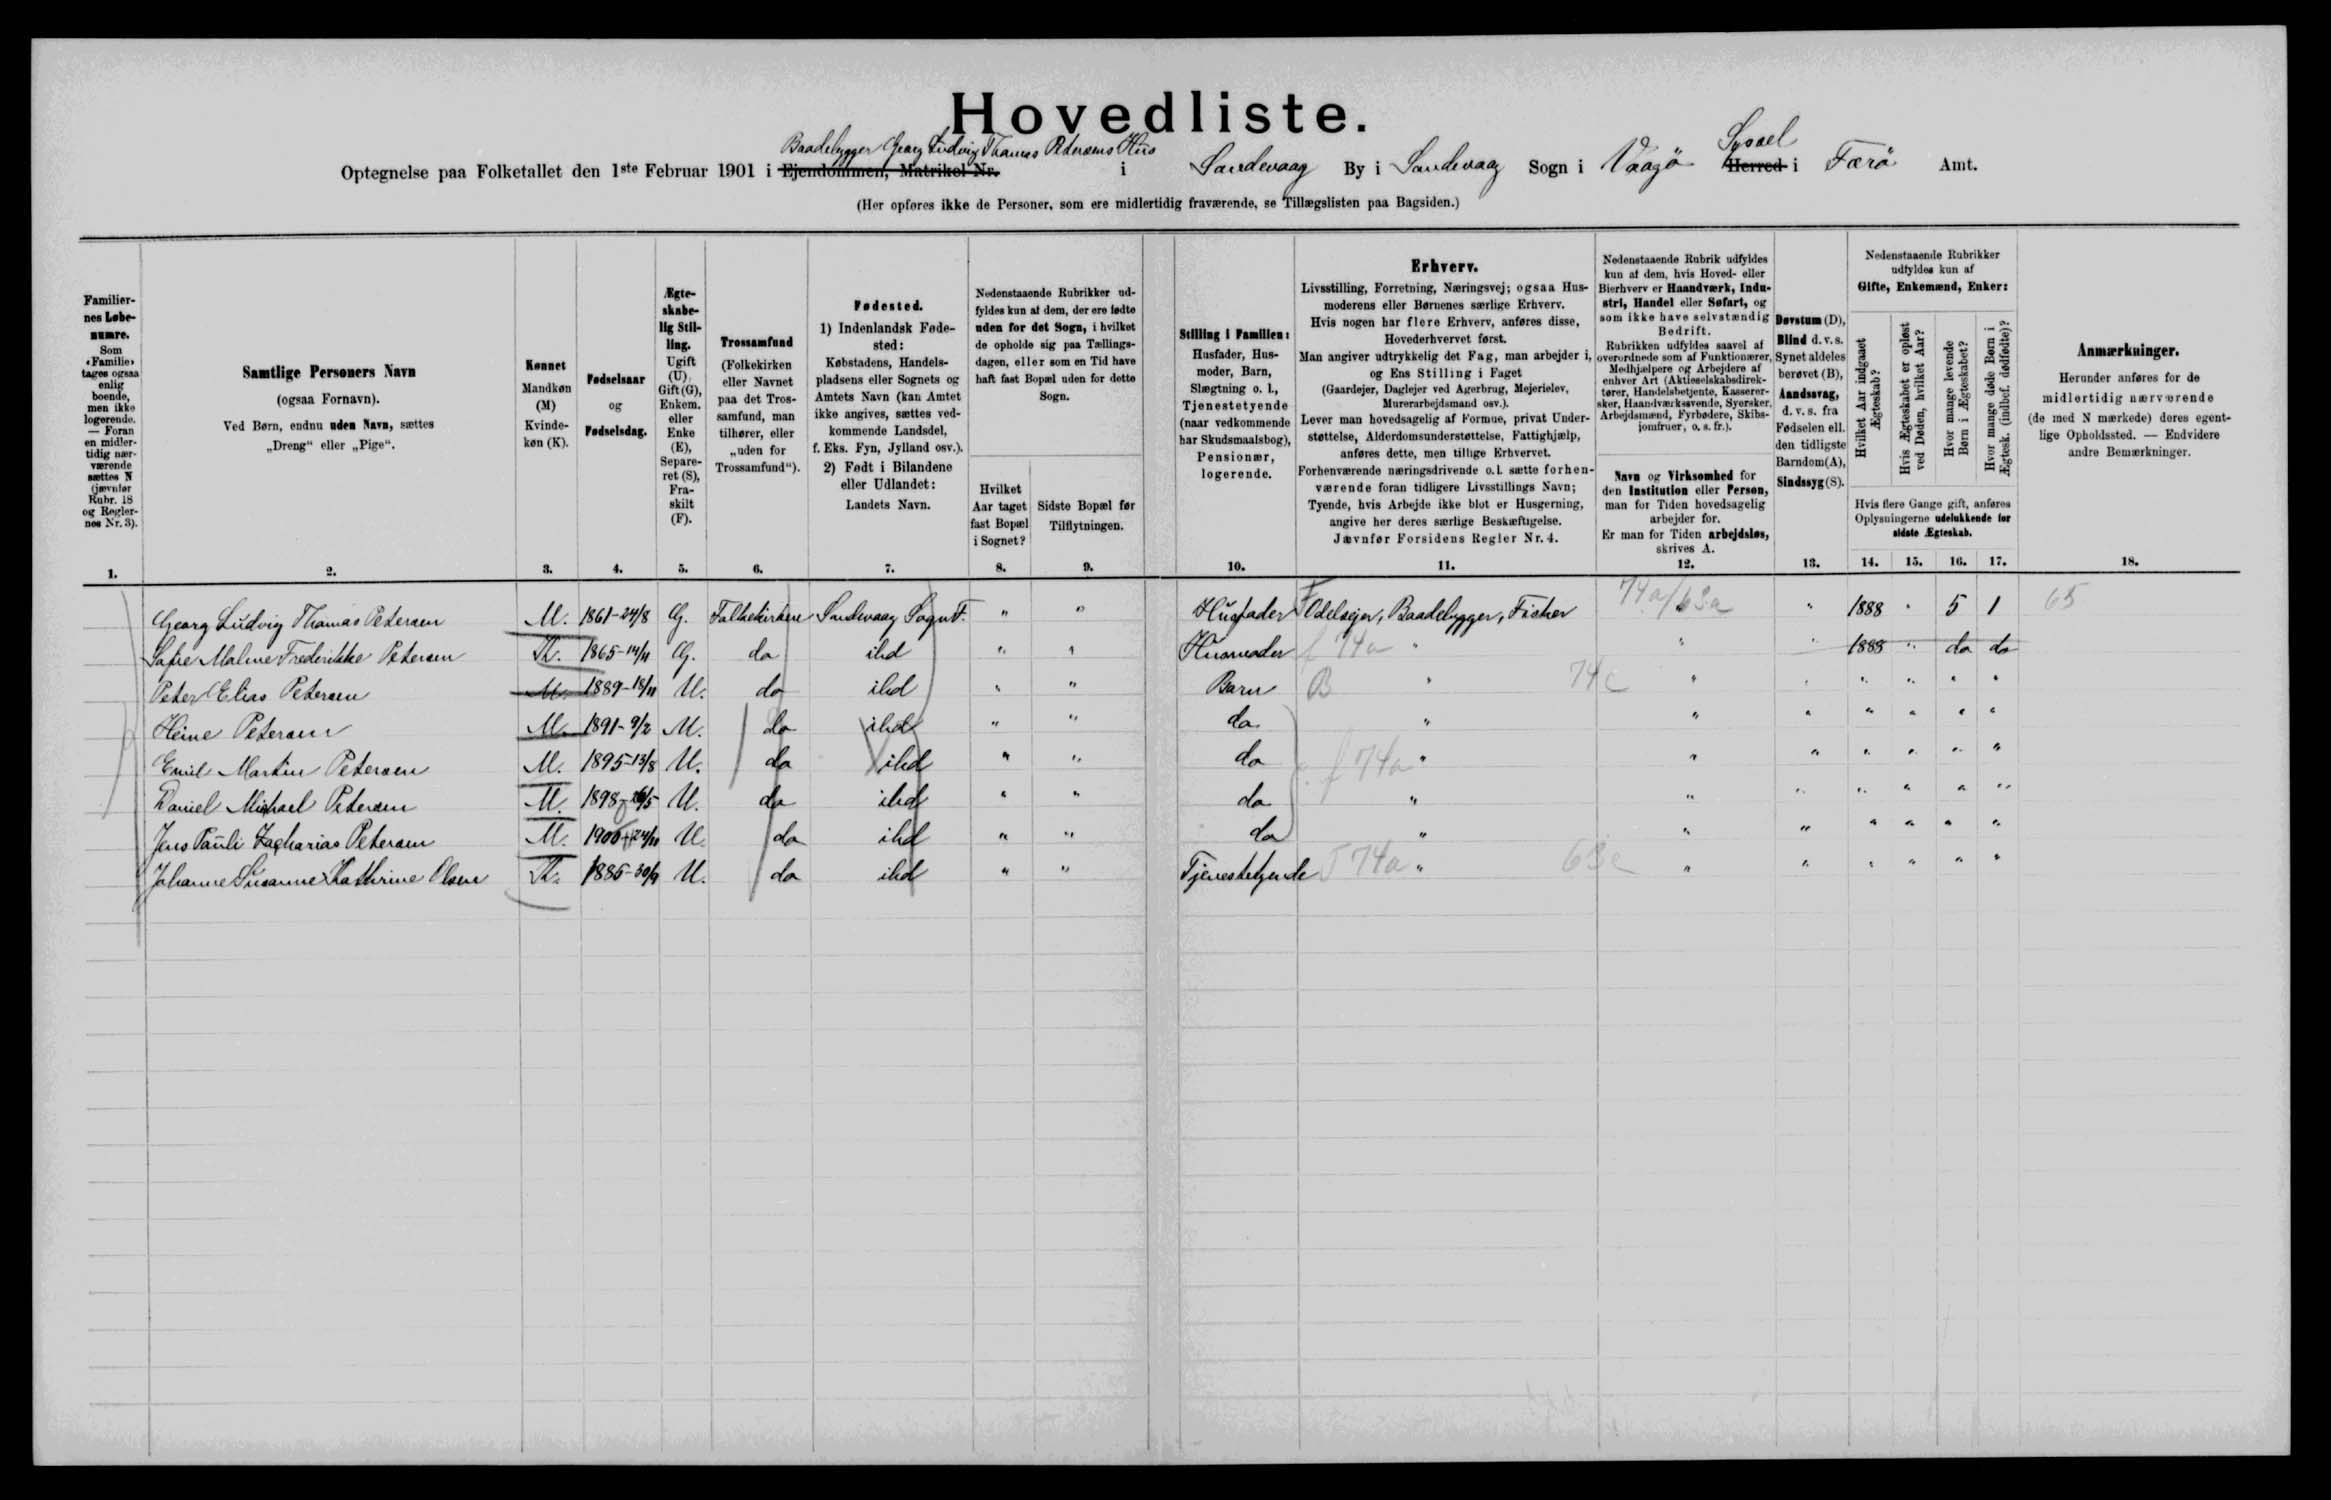 Hovedliste.
Baadebygger Georg Ludvig Thomas Petersens Hus
Sysael
Optegnelse paa Folketallet den 1ste Februar 1901 i Ejendommen, Matrikel Nr. i Sandevaag By i Sandevaag Sogn i Vaagö Herred i Færö Amt.
(Her opføres ikke de Personer, som ere midlertidig fraværende, se Tillægslisten paa Bagsiden.)
Familier-
nes Løbe-
numre.
Som
«Familie»
tages ogsaa
enlig
boende,
men ikke
logerende.
— Foran
en midler-
tidig nær-
værende
sættes N
(jævnfør
Rubr. 18
og Regler-
nes Nr. 3).
Samtlige Personers Navn
(ogsaa Fornavn).
Ved Børn, endnu uden Navn, sættes
„Dreng“ eller „Pige“.
Kønnet
Mandkøn
(M)
Kvinde-
køn (K).
Fødselsaar
og
Fødselsdag.
Ægte-
skabe-
lig Stil-
ling.
Ugift
(U),
Gift (G),
Enkem.
eller
Enke
(E),
Separe-
ret (S),
Fra-
skilt
(F).
Trossamfund
(Folkekirken
eller Navnet
paa det Tros-
samfund, man
tilhører, eller
„uden for
Trossamfund“).
Fødested.
1) Indenlandsk Føde-
sted:
Købstadens, Handels-
pladsens eller Sognets og
Amtets Navn (kan Amtet
ikke angives, sættes ved-
kommende Landsdel,
f. Eks. Fyn, Jylland osv.).
2) Født i Bilandene
eller Udlandet:
Landets Navn.
Nedenstaaende Rubrikker ud-
fyldes kun af dem, der ere fødte
uden for det Sogn, i hvilket
de opholde sig paa Tællings-
dagen, eller som en Tid have
haft fast Bopæl uden for dette
Sogn.
Hvilket
Aar taget
fast Bopæl
i Sognet?
Sidste Bopæl før
Tilflytningen.
Stilling i Familien:
Husfader, Hus-
moder, Barn,
Slægtning o. l.,
Tjenestetyende
(naar vedkommende
har Skudsmaalsbog),
Pensionær,
logerende.
Erhverv.
Livsstilling, Forretning, Næringsvej; ogsaa Hus-
moderens eller Børnenes særlige Erhverv.
Hvis nogen har flere Erhverv, anføres disse,
Hovederhvervet først.
Man angiver udtrykkelig det Fag, man arbejder i,
og Ens Stilling i Faget
(Gaardejer, Daglejer ved Agerbrug, Mejerielev,
Murerarbejdsmand osv.).
Lever man hovedsagelig af Formue, privat Under-
støttelse, Alderdomsunderstøttelse, Fattighjælp,
anføres dette, men tillige Erhvervet.
Forhenværende næringsdrivende o. l. sætte forhen-
værende foran tidligere Livsstillings Navn;
Tyende, hvis Arbejde ikke blot er Husgerning,
angive her deres særlige Beskæftigelse.
Jævnfør Forsidens Regler Nr. 4.
Nedenstaaende Rubrik udfyldes
kun af dem, hvis Hoved- eller
Bierhverv er Haandværk, Indu-
stri, Handel eller Søfart, og
som ikke have selvstændig
Bedrift.
Rubrikken udfyldes saavel af
overordnede som af Funktionærer,
Medhjælpere og Arbejdere af
enhver Art (Aktieselskabsdirek-
tører, Handelsbetjente, Kasserer-
sker, Haandværkssvende, Syersker,
Arbejdsmænd, Fyrbødere, Skibs-
jomfruer, o. s. fr.).
Navn og Virksomhed for
den Institution eller Person,
man for Tiden hovedsagelig
arbejder for.
Er man for Tiden arbejdsløs,
skrives A.
Døvstum (D),
Blind d. v. s.
Synet aldeles
berøvet (B),
Aandssvag,
d. v. s. fra
Fødselen ell.
den tidligste
Barndom (A),
Sindssyg (S).
Nedenstaaende Rubrikker
udfyldes kun af
Gifte, Enkemænd, Enker:
Hvilket Aar indgaaet
Ægteskab?
Hvis Ægteskabet er opløst
ved Døden, hvilket Aar?
Hvor mange levende
Børn i Ægteskabet?
Hvor mange døde Børn i
Ægtesk. (indbef. dødfødte)?
Hvis flere Gange gift, anføres
Oplysningerne udelukkende for
sidste Ægteskab.
Anmærkninger.
Herunder anføres for de
midlertidig nærværende
(de med N mærkede) deres egent-
lige Opholdssted. — Endvidere
andre Bemærkninger.
1. 2. 3. 4. 5. 6. 7. 8. 9. 10. 11. 12. 13. 14. 15. 16. 17. 18.
Georg Ludvig Thomas Petersen M. 1861-24/8 G. Folkekirken Sandevaag Sogn F. " " Husfader F Odelsejer, Baadebygger, Fisker 74a/63a " 1888 " 5 1 65
Sofie Maline Frederikke Petersen K. 1865-14/11 G. do ibd " " Husmoder f 74a " " " 1888 " do do
Peter Elias Petersen M. 1889-18/11 U. do ibd " " Barn B " 74c " " " " " "
Heine Petersen M. 1891-9/2 U. do ibd " " do " " " " " " "
Emil Martin Petersen M. 1895-13/8 U. do ibd " " do f 74a " " " " " " "
Daniel Michael Petersen M. 1898-26/5 U. do ibd " " do " " " " " " "
Jens Pauli Zacharias Petersen M. 1900-24/11 U. do ibd " " do " " " " " " "
Johanne Susanne Kathrine Olsen K. 1885-30/9 U. do ibd " " Tjenestetyende T 74a " 63c " " " " " "